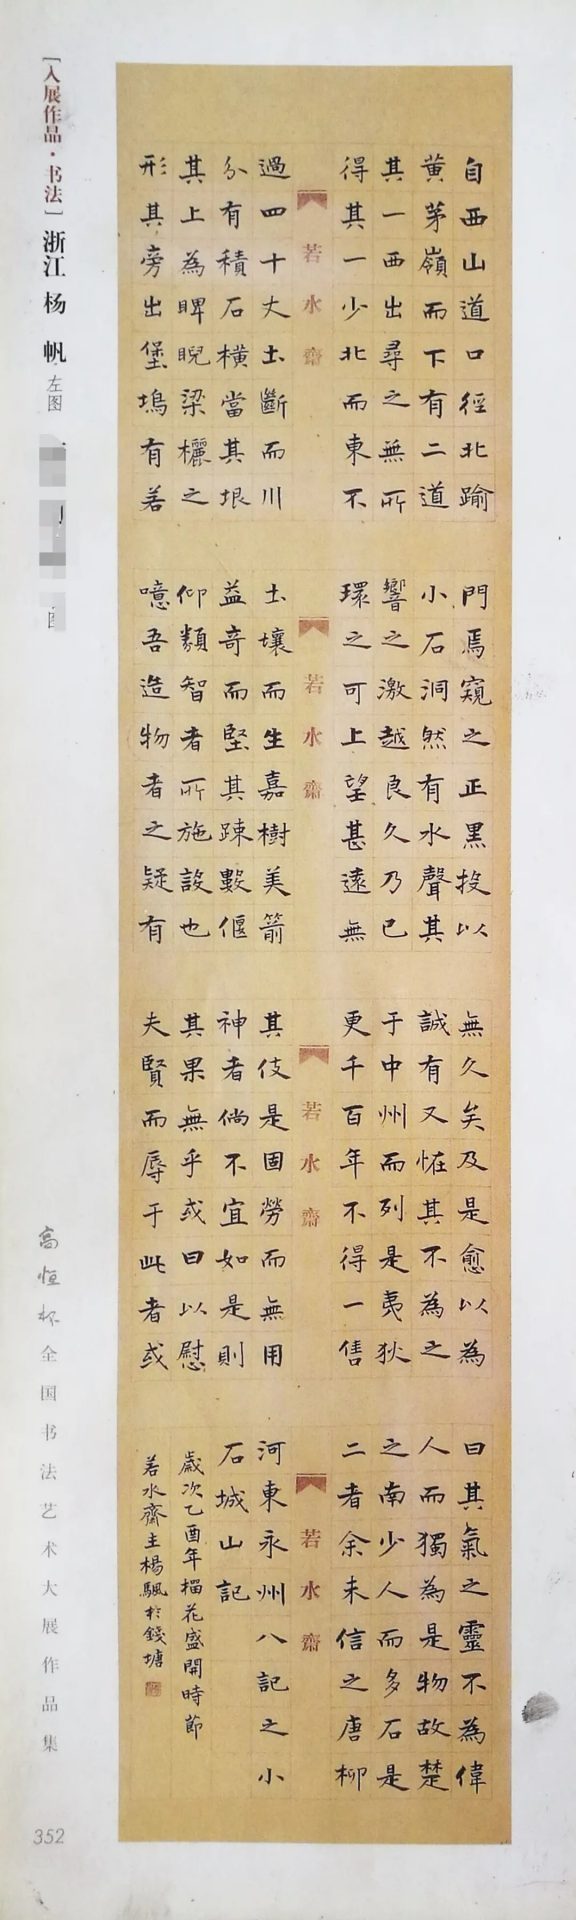 [入展作品·书法] 浙江 杨 帆 左图
自西山道口徑北踰
黄茅嶺而下有二道
其一西出尋之無所
得其一少北而東不
若水齋
過四十丈土斷而川
分有積石横當其垠
其上為睥睨梁欐之
形其旁出堡塢有若
門焉窺之正黑投以
小石洞然有水聲其
響之激越良久乃已
環之可上望甚遠無
若水齋
土壤而生嘉樹美箭
益奇而堅其踈數偃
仰類智者所施設也
噫吾造物者之疑有
無久矣及是愈以為
誠有又恠其不為之
于中州而列是夷狄
更千百年不得一售
若水齋
其伎是固勞而無用
神者倘不宜如是則
其果無乎或曰以慰
夫賢而辱于此者或
曰其氣之靈不為偉
人而獨為是物故楚
之南少人而多石是
二者余未信之唐柳
若水齋
河東永州八記之小
石城山記
歲次乙酉年榴花盛開時節
若水齋主楊颿於錢塘
高恒杯全国书法艺术大展作品集
352